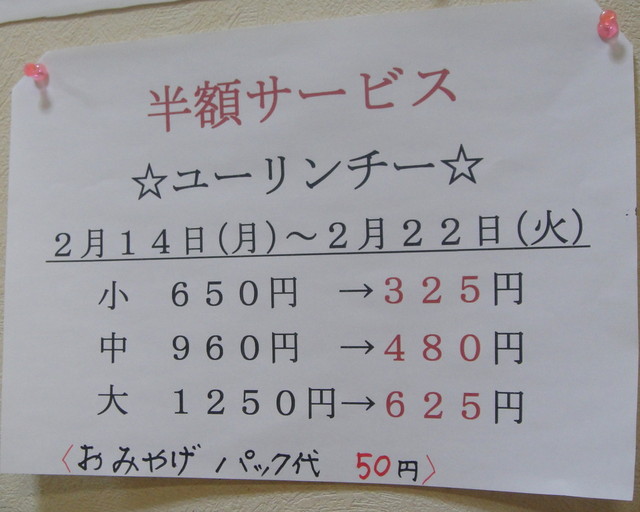 半額サービス
☆ユーリンチー☆
２月１４日(月)～２月２２日(火)
小　６５０円　→３２５円
中　９６０円　→４８０円
大　１２５０円→６２５円
〈おみやげ パック代 50円〉